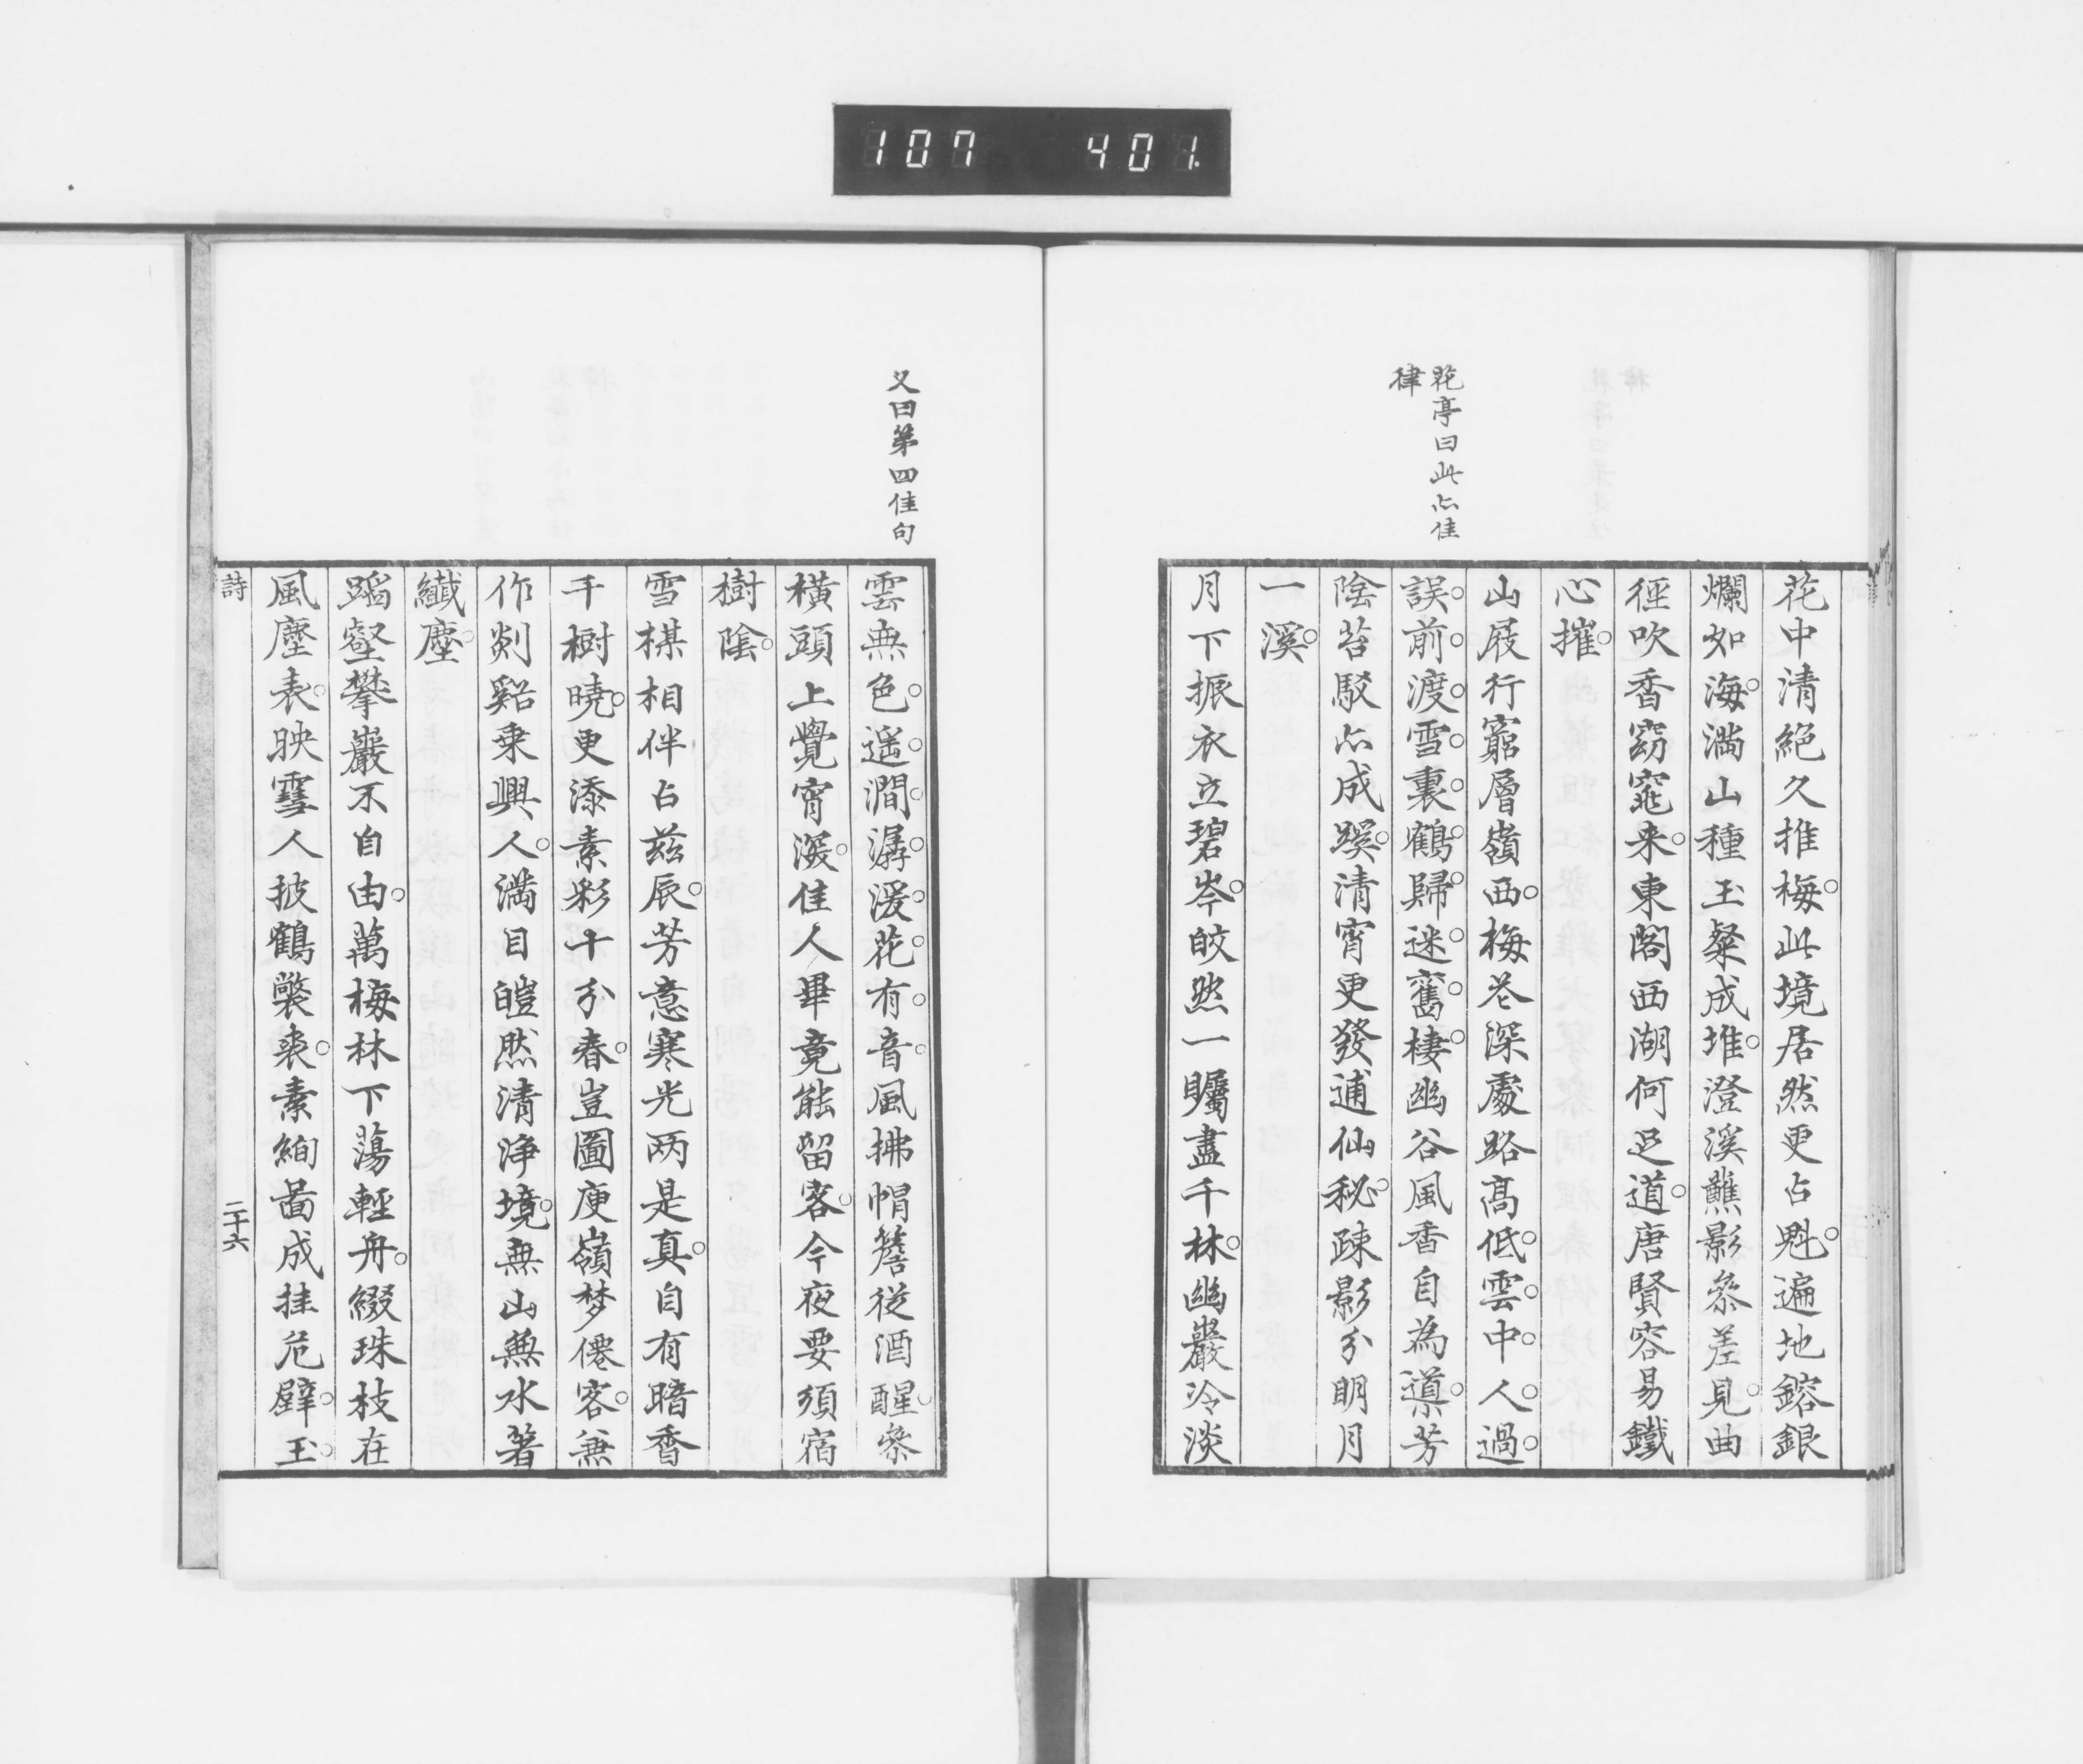 107 401
花亭曰此亦佳
律
花中清絶久推梅此境居然更占魁遍地鎔銀
爛如海満山種玉粲成堆澄溪蘸影参差見曲
徑吹香窈窕来東閣西湖何足道唐賢容易鐵
心摧
山屐行窮層嶺西梅花深處路高低雲中人過
誤前渡雪裏鶴歸迷舊棲幽谷風香自為導芳
陰苔駁亦成蹊清宵更發逋仙秘疎影分明月
一溪
月下振衣立碧岑皎然一矚盡千林幽巖冷淡
又曰第四佳句
雲無色遥澗潺湲花有音風拂帽簷従酒醒参
横頭上覺宵深佳人畢竟能留客今夜要須宿
樹陰
雪楳相伴占茲辰芳意寒光两是真自有暗香
千樹暁更添素彩十分春豈圖庾嶺梦僊客兼
作剡谿乗興人満目皚然清浄境無山無水著
纖塵
蹈壑攀巖不自由萬梅林下蕩輕舟綴珠枝在
風塵表映雪人披鶴氅裘素絢啚成挂危壁玉
詩
二十六